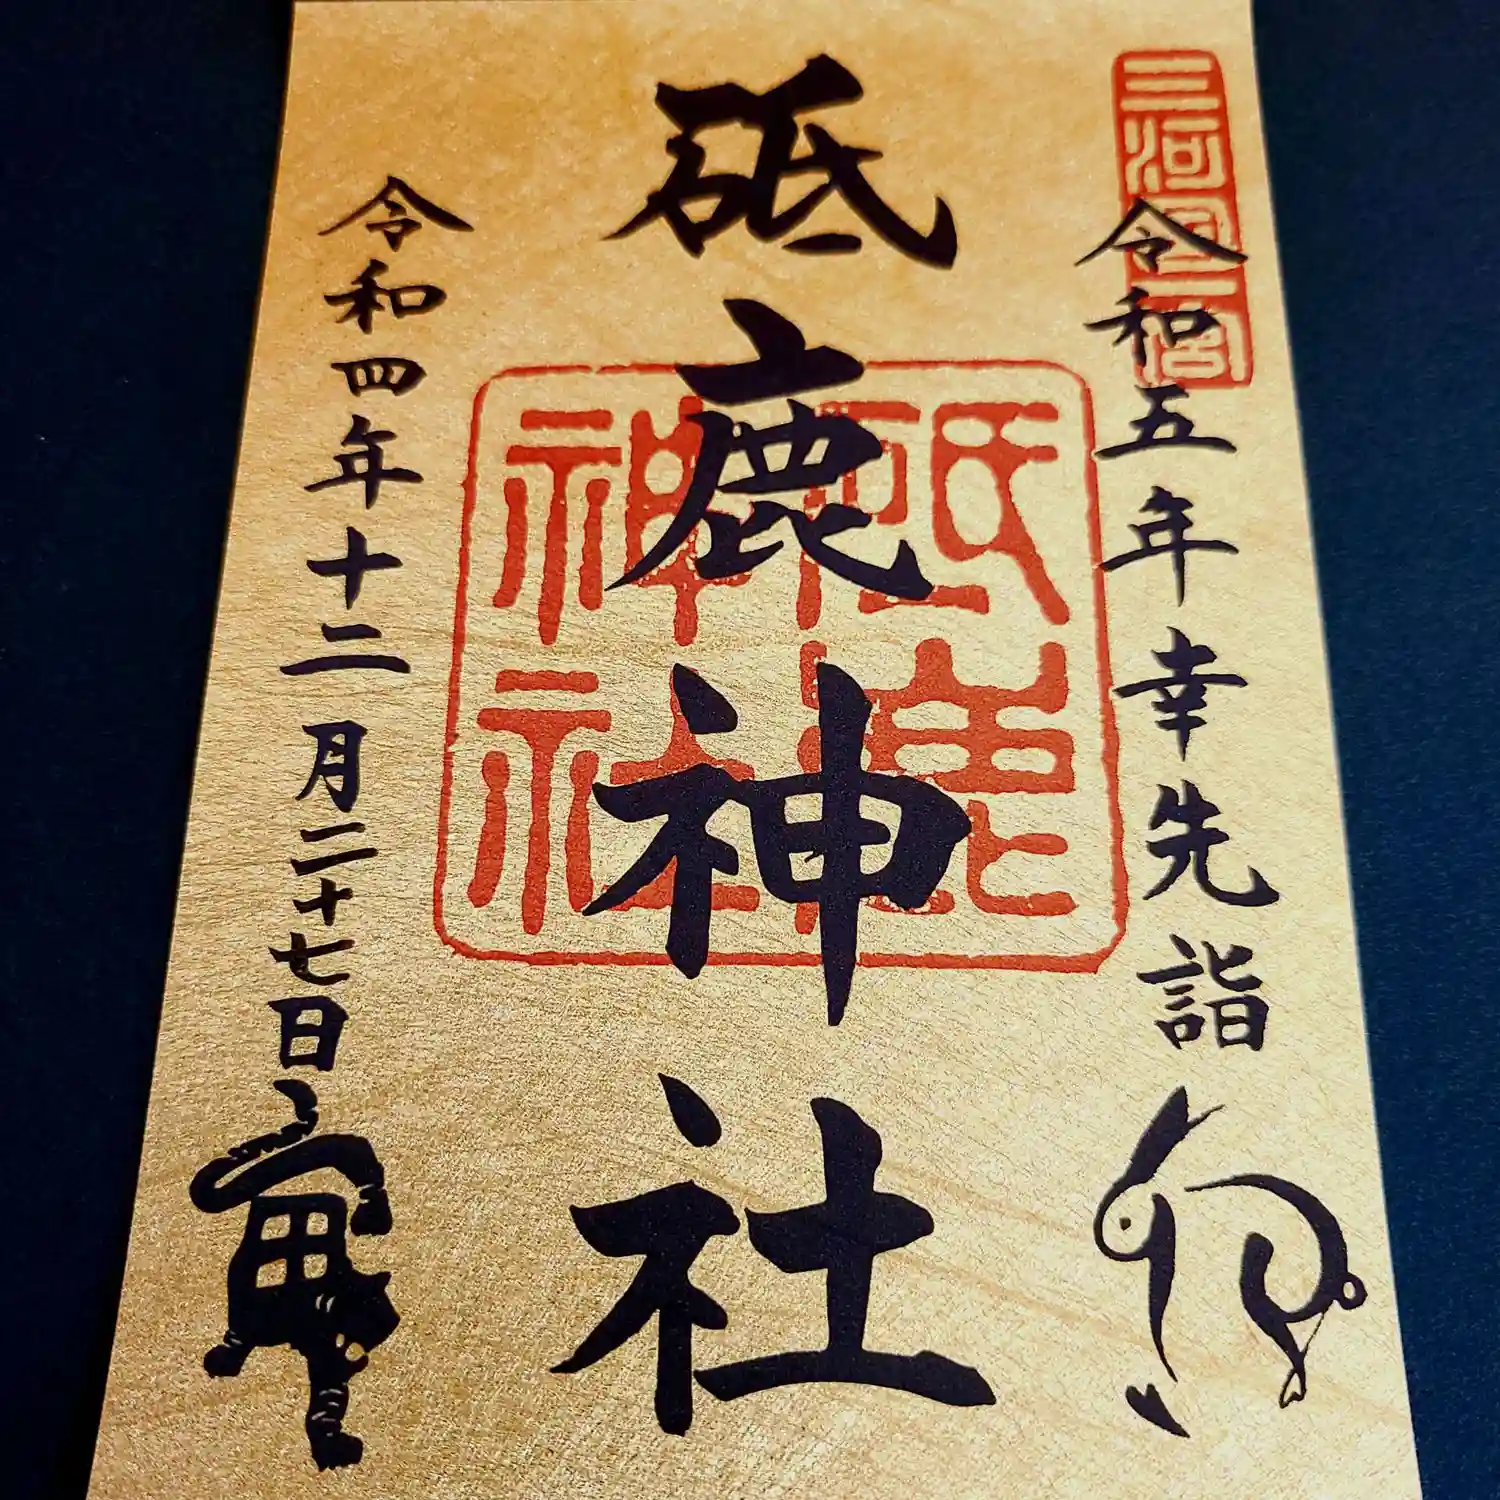 三河國一宮
令和五年幸先詣
卯
砥鹿神社
砥鹿
神社
令和四年十二月二十七日
寅